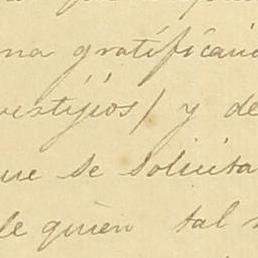 na gratificació
vestijios/ y de
que se solicita
de quien tal